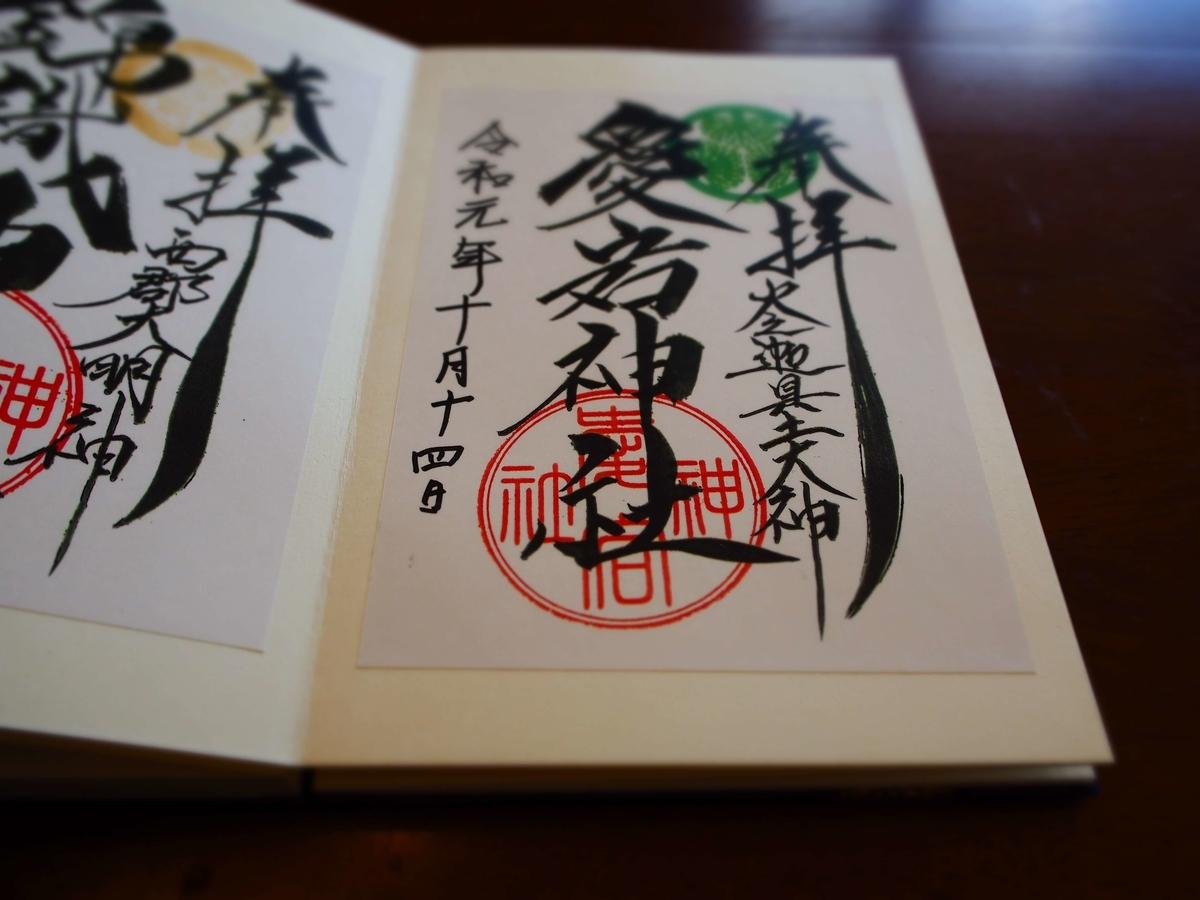 奉拝
火之迦具土大神
愛宕神社
愛宕神社
令和元年十月十四日
奉拝
西郡大明神
神